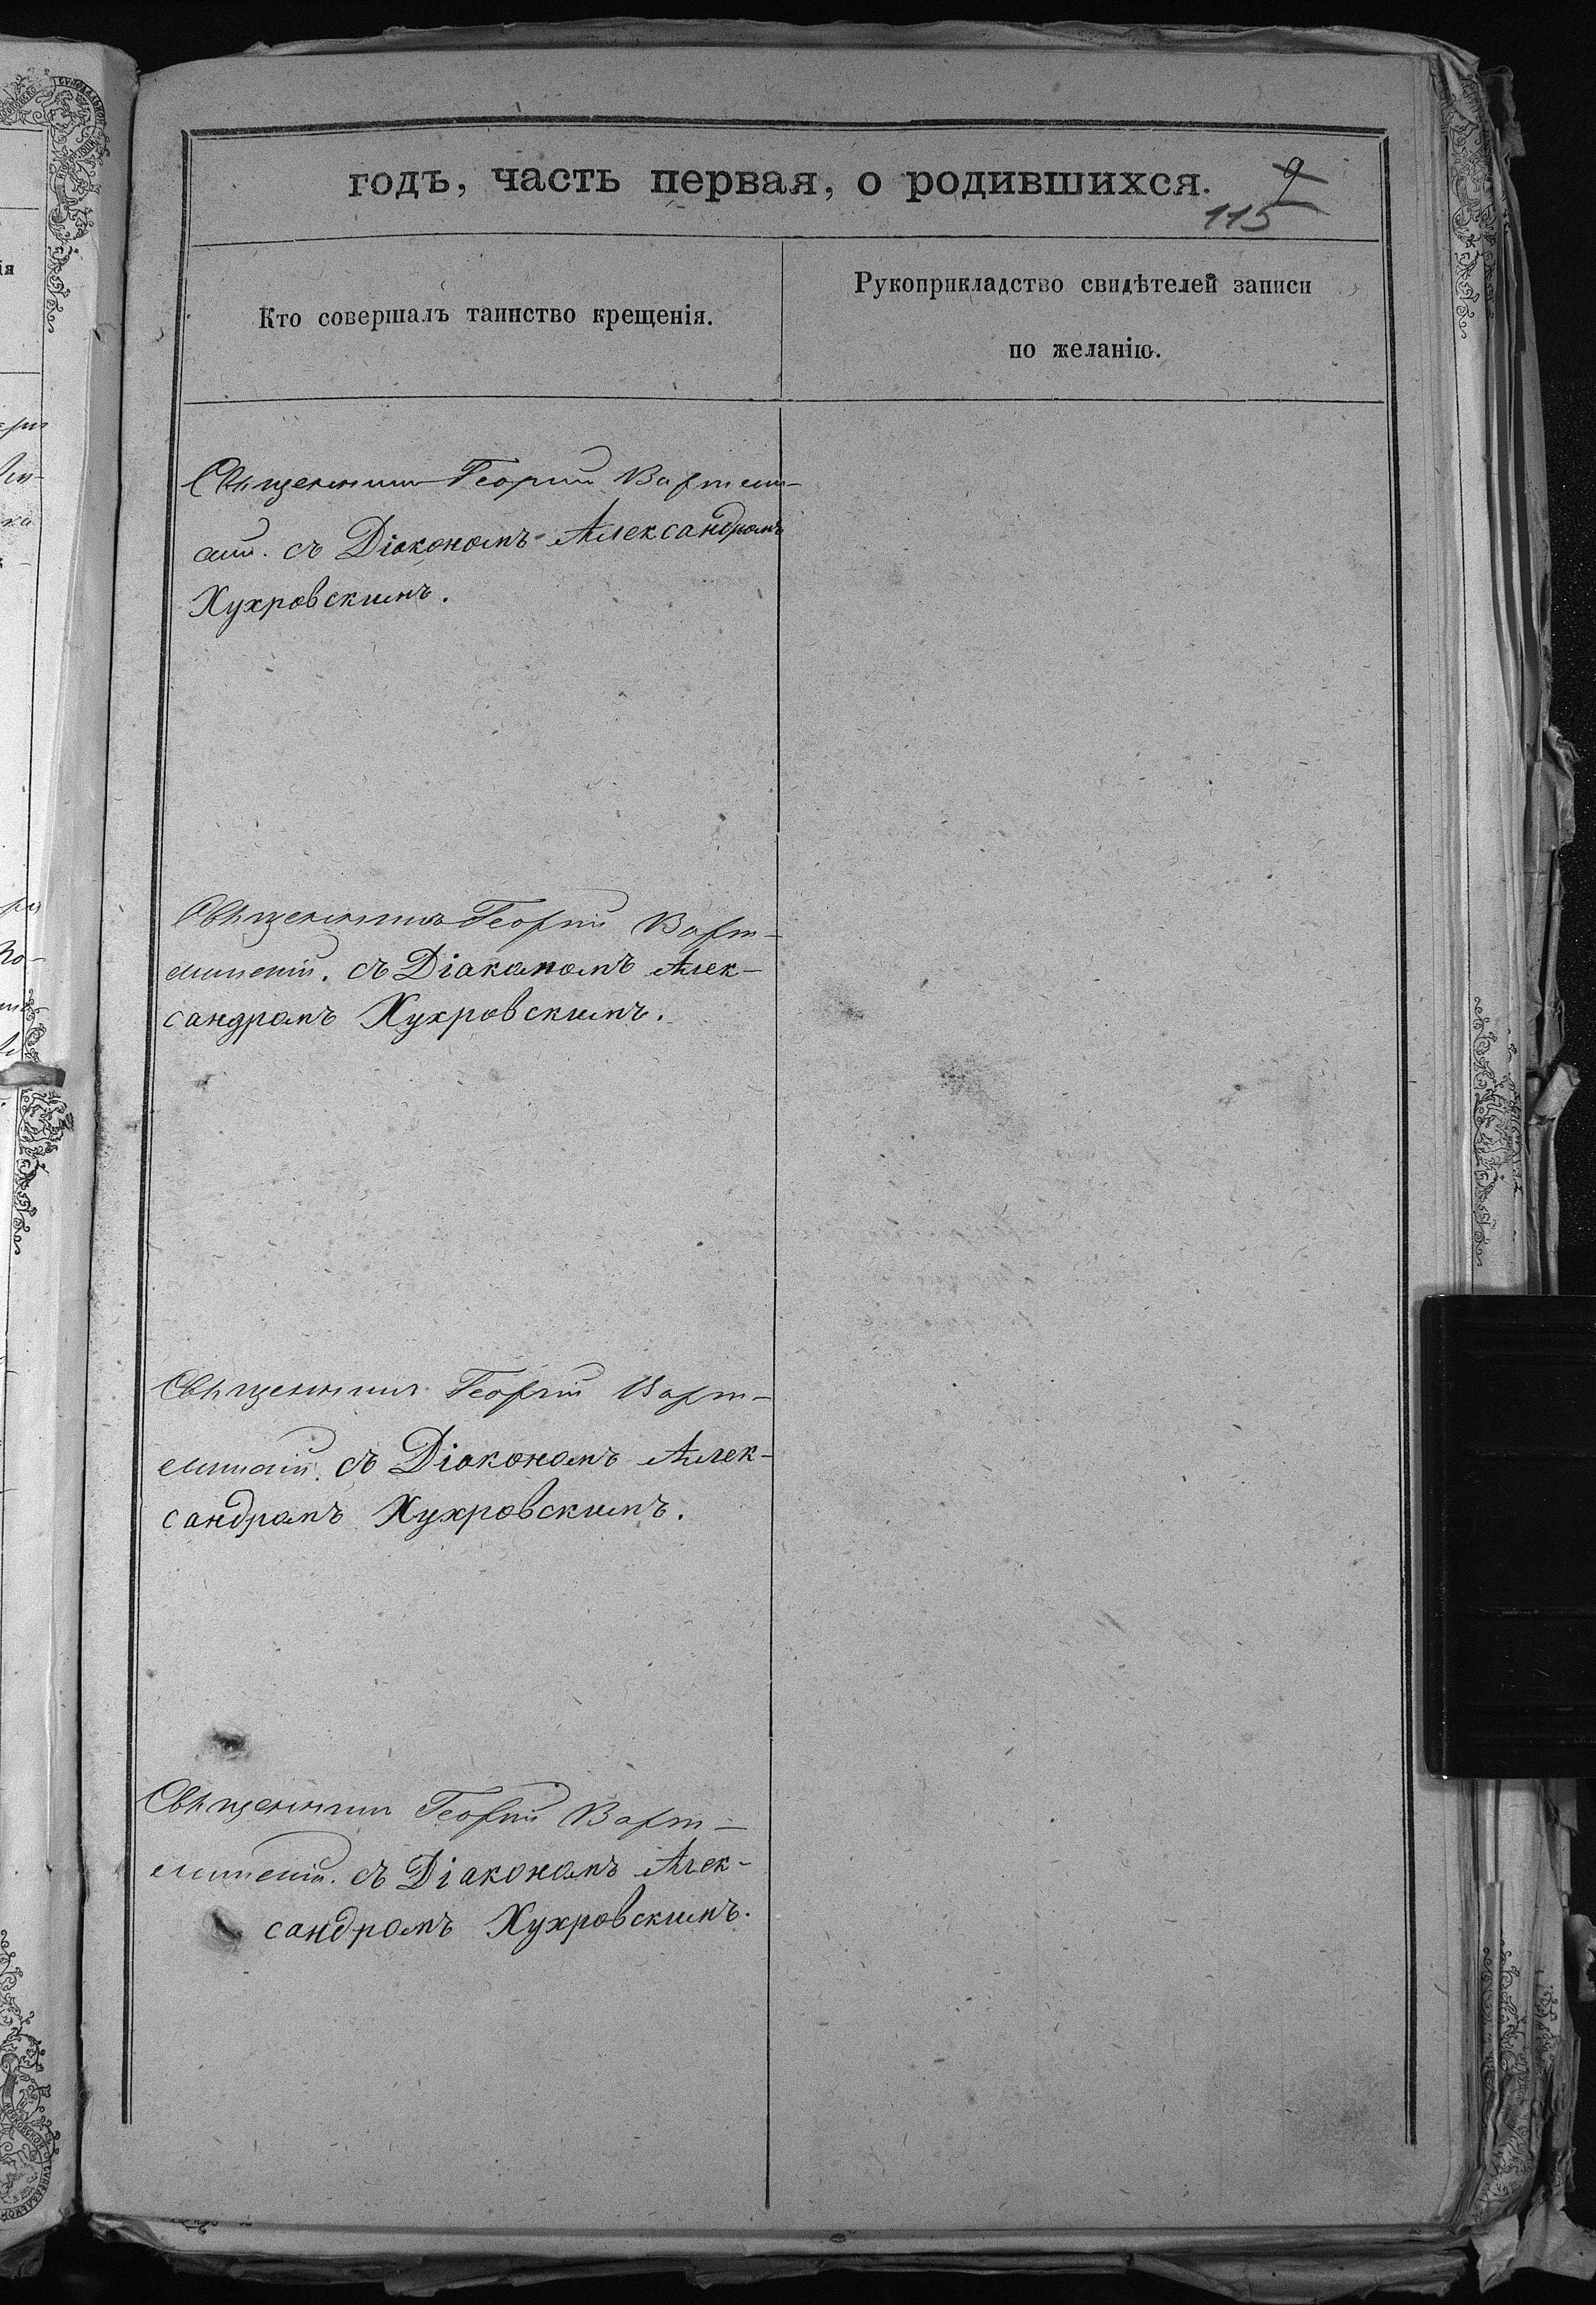 годъ, часть первая, о родившихся.
9
115
Кто совершалъ таинство крещенія.
Рукоприкладство свидѣтелей записи
по желанію.
Священникъ Георгій
съ Діакономъ Александромъ
Хухровскимъ.
Священникъ Георгій
съ Діакономъ Алек-
сандромъ Хухровскимъ.
Священникъ Георгій
съ Діакономъ Алек-
сандромъ Хухровскимъ.
Священникъ Георгій
съ Діакономъ Алек-
сандромъ Хухровскимъ.